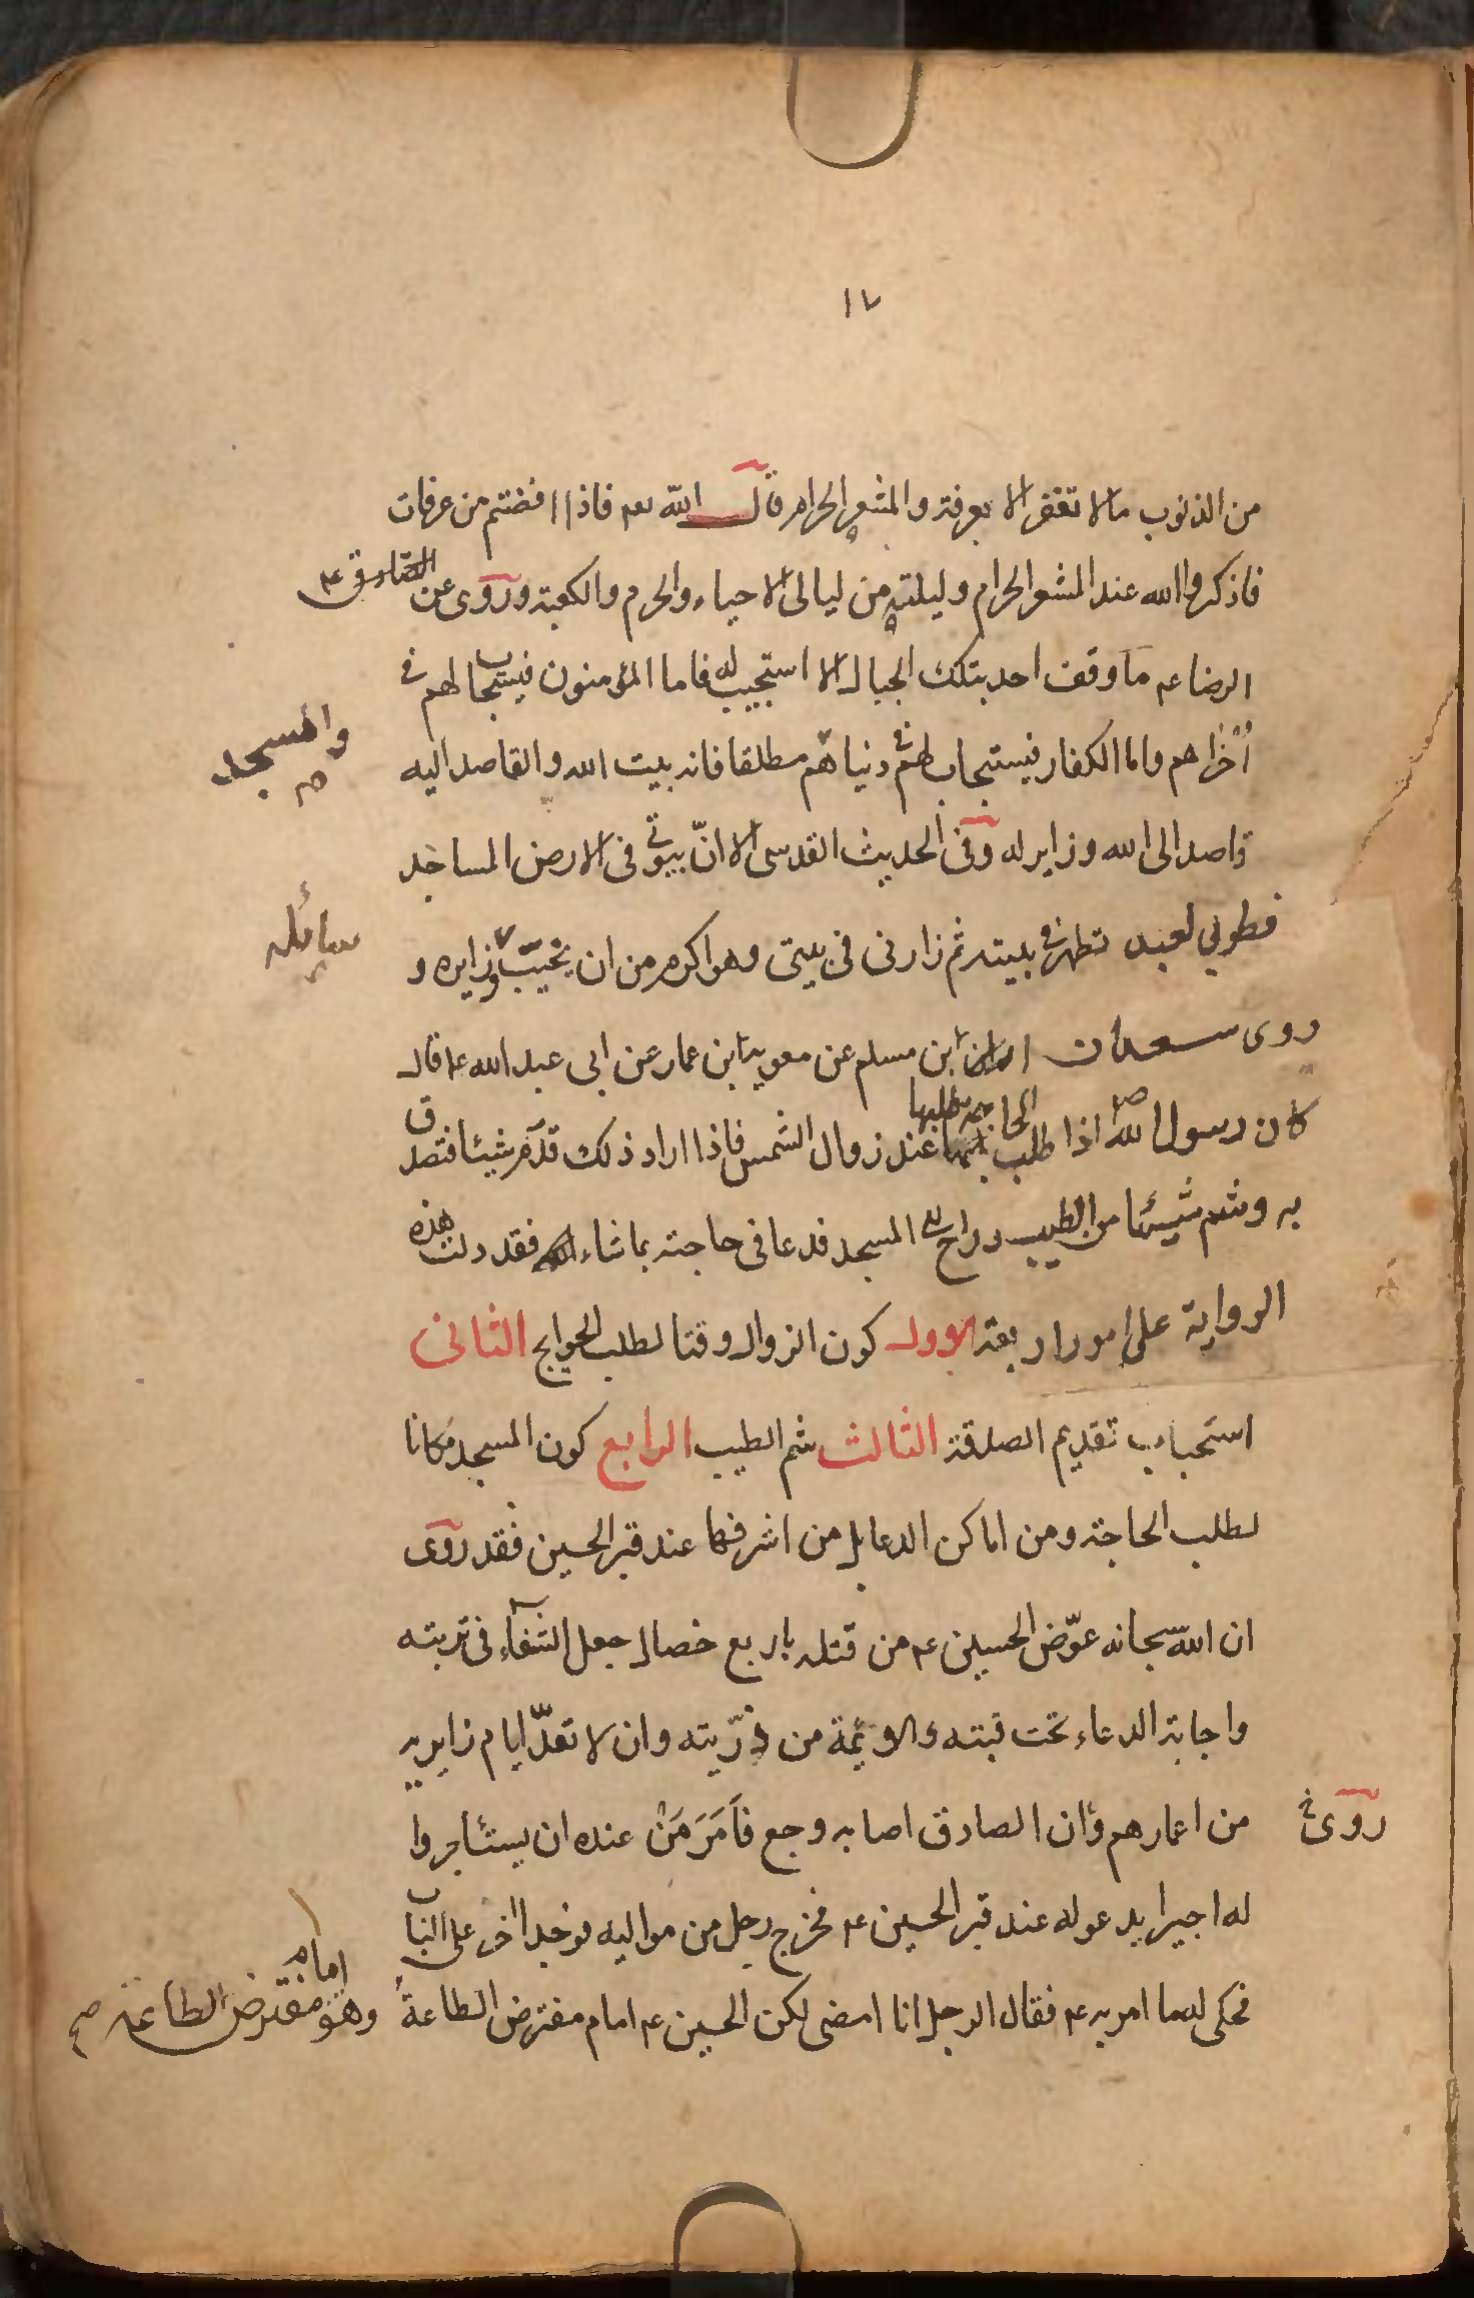 ١٧
من الذنوب ما لا تغفر الا بعرفة والمشعر الحرام قال الله تعم فاذا افضتم من عرفات
فاذكروا الله عند المشعر الحرام وليلته من ليالى الاحياء والحرم والكعبة وروى عن
الرضا عم ما وقف احد بتلك الجبال الا استجيب له فاما المؤمنون فيستجاب لهم فى
اخراهم واما الكفار فيستجاب لهم فى دنياهم مطلقا فانه بيت الله والقاصد اليه
والمسجد
قاصد الى الله وزاير له وفى الحديث القدسى الا انّ بيوتى فى الارض المساجد
فطوبى لعبد تطهر فى بيته ثم زارنى فى بيتى وهو اكرم من ان يخيّب زايره و
سائله
روى سعدان ابن مسلم عن معوية ابن عمار عن ابى عبد الله عم قال
كان رسول الله ص اذا طلب الحاجة طلبها عند زوال الشمس فاذا اراد ذلك قدّم شيئا فتصدق
به وشم شيئا من الطيب وراح الى المسجد فدعا فى حاجته بما شاء الله فقد دلت هذه
الرواية على امور اربعة الاول كون الزوال وقتا لطلب الحوايج الثانى
استحباب تقديم الصدقة الثالث شم الطيب الرابع كون المسجد مكانا
لطلب الحاجة ومن اماكن الدعا بل من اشرفها عند قبر الحسين فقد روى
ان الله سبحانه عوّض الحسين عم من قتله باربع خصال جعل الشفاء فى تربته
واجابة الدعاء تحت قبته والائمة من ذرّيته وان لا تعدّ ايام زايريه
من اعمارهم وان الصادق اصابه وجع فاَمَرَ مَنْ عنده ان يستئاجروا
روى
له اجيرا يدعو له عند قبر الحسين عم فخرج رجل من مواليه فوجد اخر على الباب
فحكى له ما امر به عم فقال الرجل انا امضى لكن الحسين عم امام مفترض الطاعة
وهو امام مفترض الطاعة صح